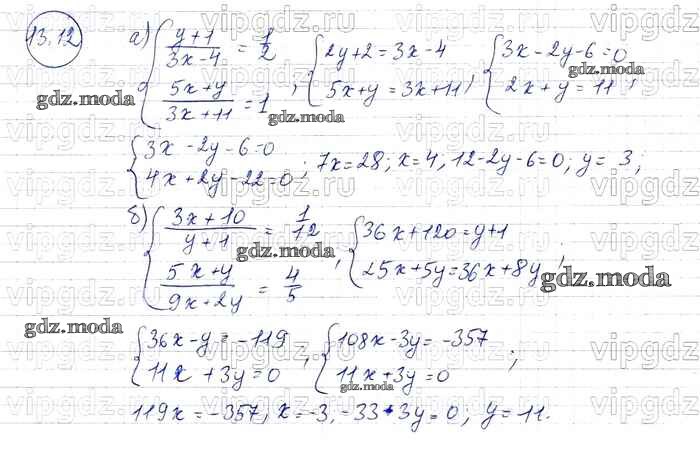 13.12
а) { (y+1)/(3x-4) = 1/2
(5x+y)/(3x+11) = 1 ; { 2y+2=3x-4
5x+y=3x+11 ; { 3x-2y-6=0
2x+y=11 ;
{ 3x-2y-6=0
4x+2y-22=0 ; 7x=28; x=4, 12-2y-6=0; y=3;
б) { (3x+10)/(y+1) = 1/12
(5x+y)/(9x+2y) = 4/5 ; { 36x+120=y+1
25x+5y=36x+8y ;
{ 36x-y=-119
11x+3y=0 ; { 108x-3y=-357
11x+3y=0 ;
119x=-357, x=-3, -33+3y=0; y=11.
gdz.moda
gdz.moda
gdz.moda
gdz.moda
gdz.moda
gdz.moda
gdz.moda
vipgdz.ru